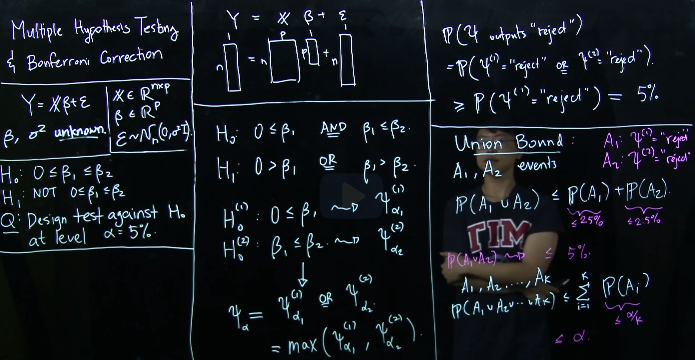 Multiple Hypothesis Testing
& Bonferroni Correction
Y = Xβ + ε
β, σ² unknown.
X ∈ ℝⁿˣᵖ
β ∈ ℝᵖ
ε ~ Nₙ(0, σ²I)
H₀: 0 ≤ β₁ ≤ β₂
H₁: NOT 0 ≤ β₁ ≤ β₂
Q: Design test against H₀
at level α = 5%.
Y = X β + ε
n = n p p + n
H₀: 0 ≤ β₁ AND β₁ ≤ β₂.
H₁: 0 > β₁ OR β₁ > β₂.
H₀⁽¹⁾: 0 ≤ β₁ ⇝ ψ_α₁⁽¹⁾
H₀⁽²⁾: β₁ ≤ β₂ ⇝ ψ_α₂⁽²⁾
↓
ψ_α = ψ_α₁⁽¹⁾ OR ψ_α₂⁽²⁾
= max(ψ_α₁⁽¹⁾, ψ_α₂⁽²⁾).
ℙ(ψ outputs "reject")
= ℙ(ψ⁽¹⁾ = "reject" OR ψ⁽²⁾ = "reject").
≥ ℙ(ψ⁽¹⁾ = "reject") = 5%
Union Bound:
A₁: ψ⁽¹⁾ = "reject"
A₂: ψ⁽²⁾ = "reject"
A₁, A₂ events
ℙ(A₁ ∪ A₂) ≤ ℙ(A₁) + ℙ(A₂).
≤ 2.5% ≤ 2.5%
ΓΙΜ
ℙ(A₁∪A₂) ⇝ ≤ 5%.
A₁, A₂, ..., A_K
ℙ(A₁ ∪ A₂ ∪ ... ∪ A_K) ≤ Σ_{i=1}^{K} ℙ(A_i)
≤ α/K
≤ α.